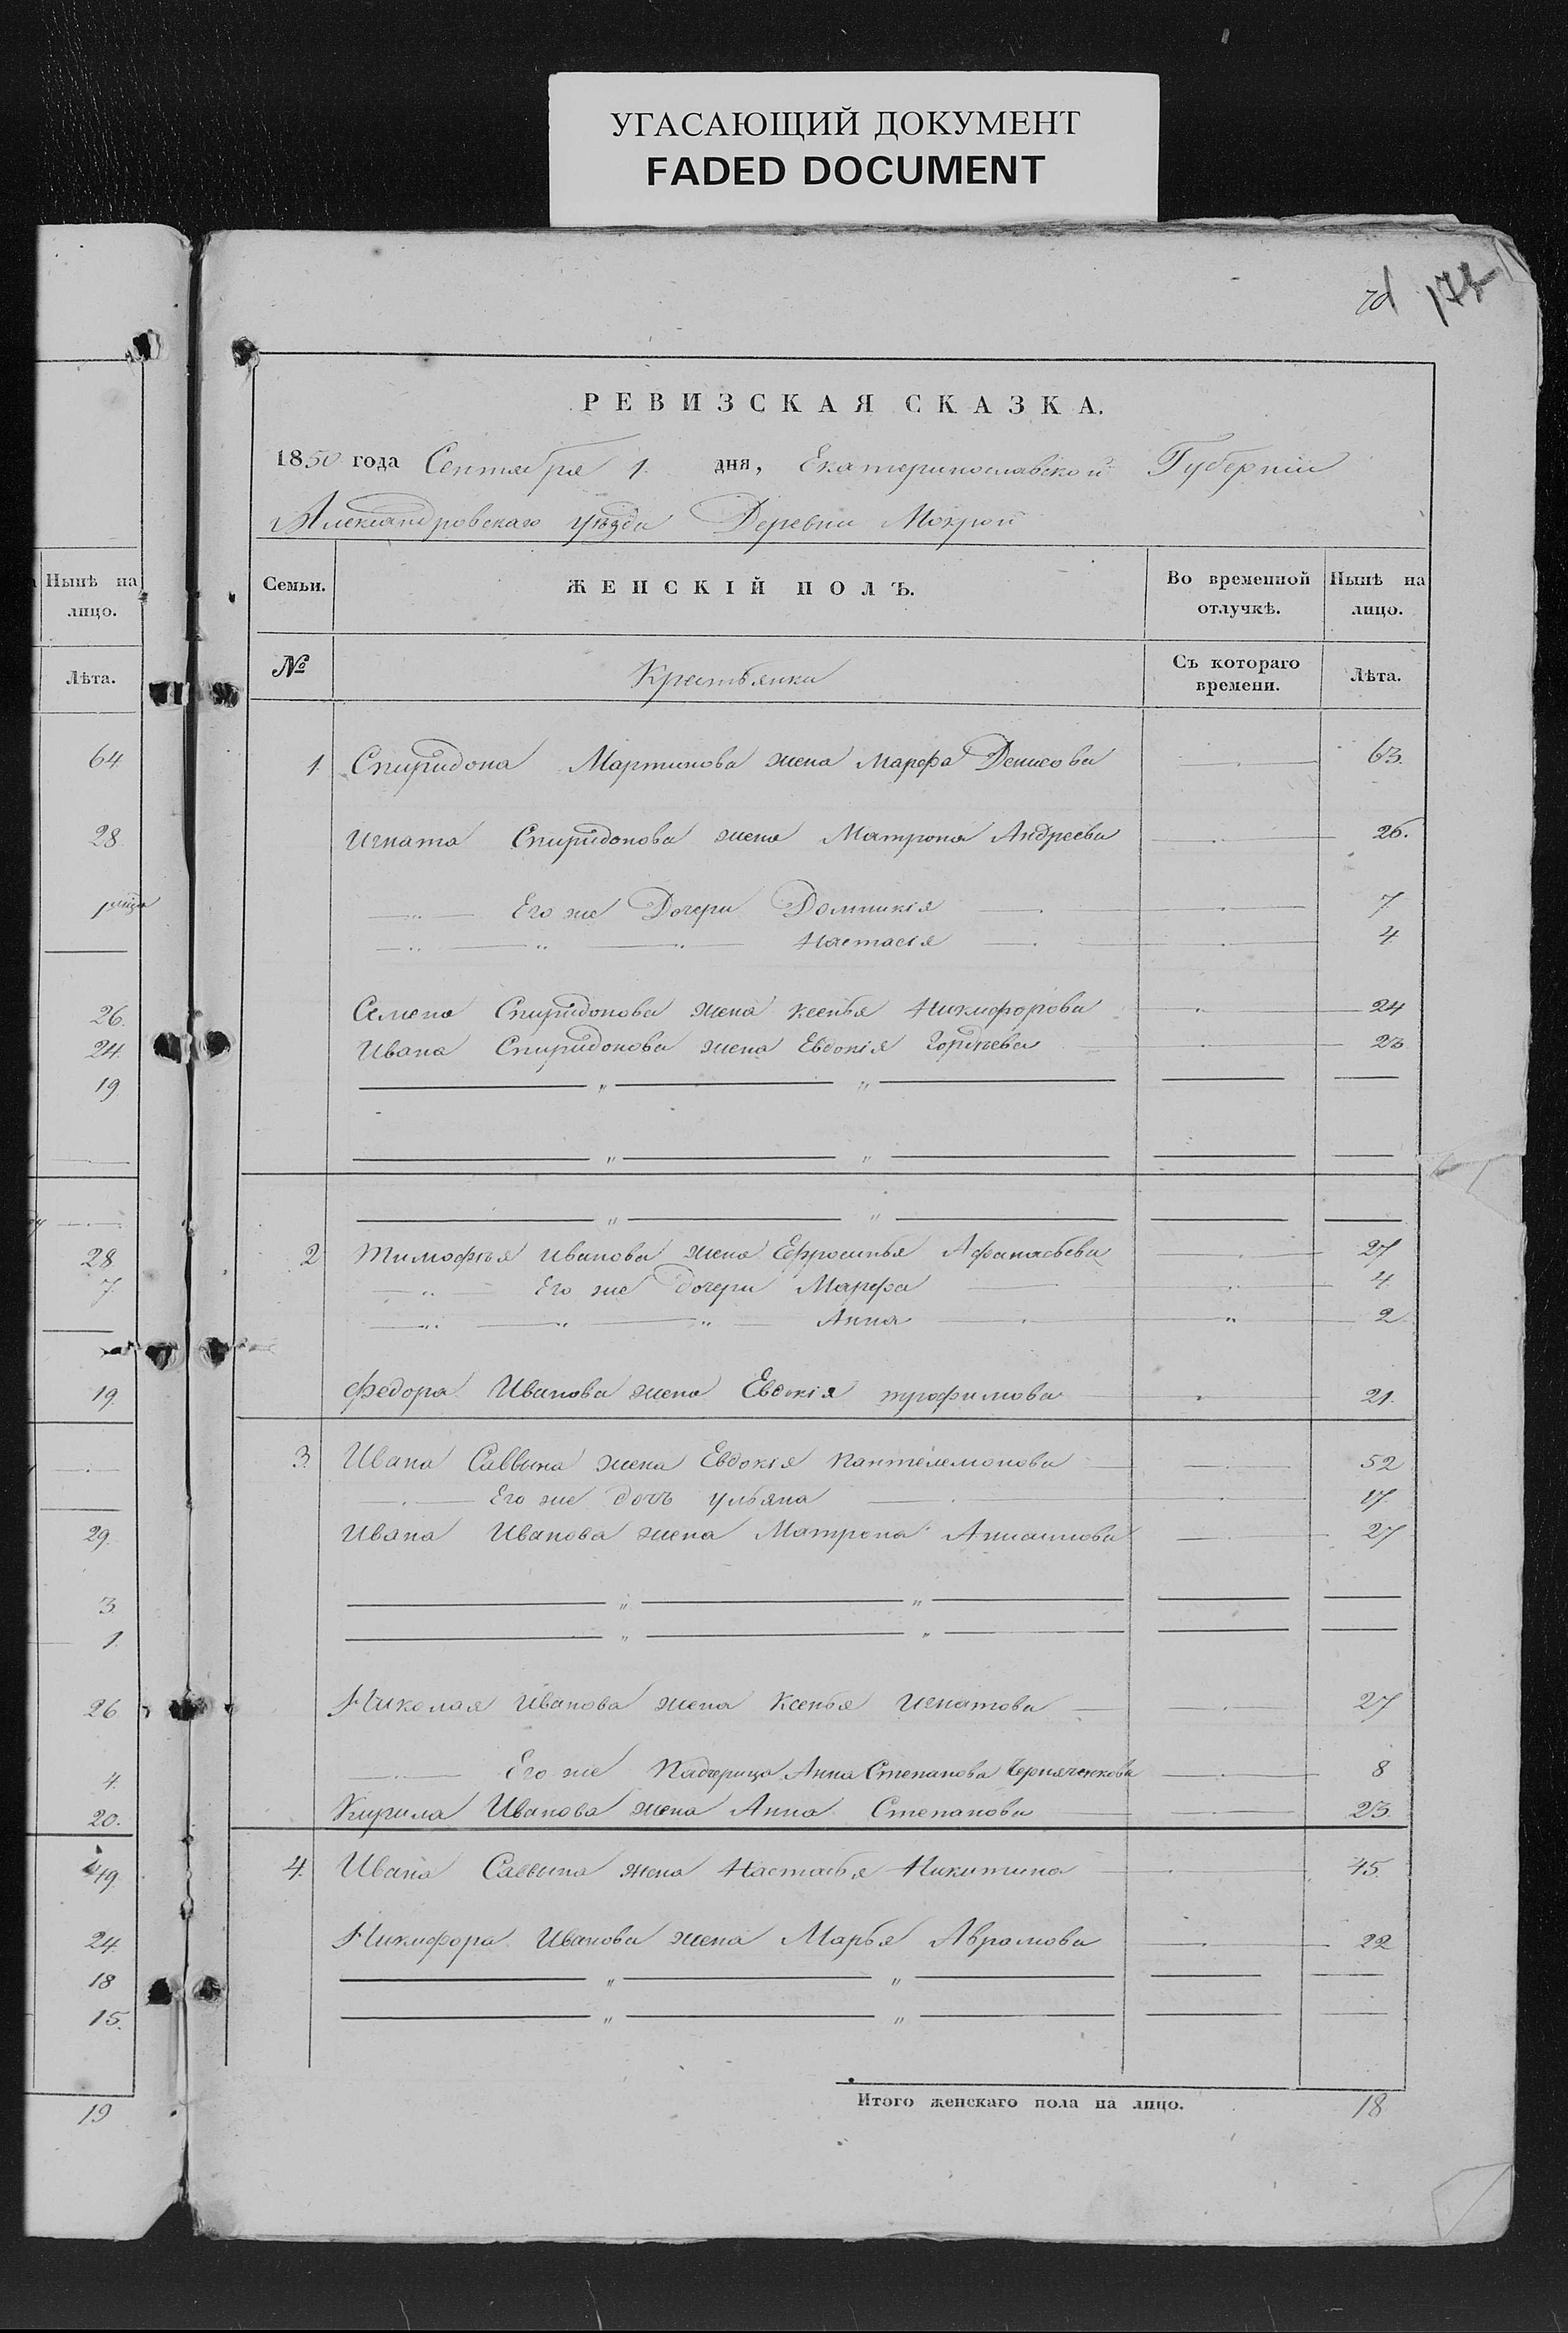 УГАСАЮЩИЙ ДОКУМЕНТ
FADED DOCUMENT
РЕВИЗСКАЯ СКАЗКА.
1850 года Сентября 1. дня, Екатеринославской Губерніи
Александровскаго уѣзда Деревни Мокрой
Нынѣ на
лицо.
Лѣта.
64
28
26.
24.
19
28
7.
19.
29.
3.
1.
26
4.
20.
49.
24.
18
15.
19
Семьи. ЖЕНСКІЙ ПОЛЪ. Во временной отлучкѣ. Нынѣ на лицо.
№ Крестьянки Съ котораго времени. Лѣта.
1. Спиридона Мартинова жена Марфа Денисова 63.
Игната Спиридонова жена Матрона Андреева 26.
Его же Дочери Домникія 7
Настасія 4
Семена Спиридонова жена Ксенья Никифорова 24
Ивана Спиридонова жена Евдокія Гордѣева 23
2 Тимофѣя Иванова жена Ефросинья Афанасьева 27
Его же дочери Марфа 4
Анна 2
Федора Иванова жена Евдокія Трофимова 21.
3. Ивана Саввина жена Евдокія Пантелемонова 52
Его же дочь Ульяна 17.
Ивана Иванова жена Матрона 27
Николая Иванова жена Ксенья Игнатова 27
Его же Падчерица Анна Степанова Черняченкова 8
Кирила Иванова жена Анна Степанова 23.
4. Ивана Саввина жена Настасья Никитина 45.
Никифора Иванова жена Марья Аврамова 22
Итого женскаго пола на лицо. 18